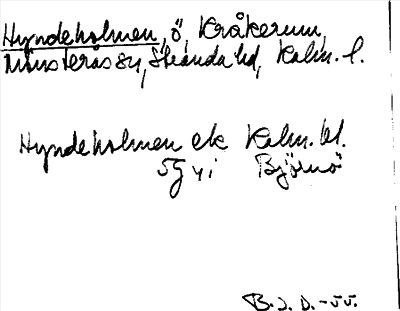 Hyndeholmen, ö, Kråkerum,
Mönsterås sn, Stranda hd, Kalm. l.
Hyndeholmen ek Kalm. bl.
5G 4i Björnö
B.J.D. -55.